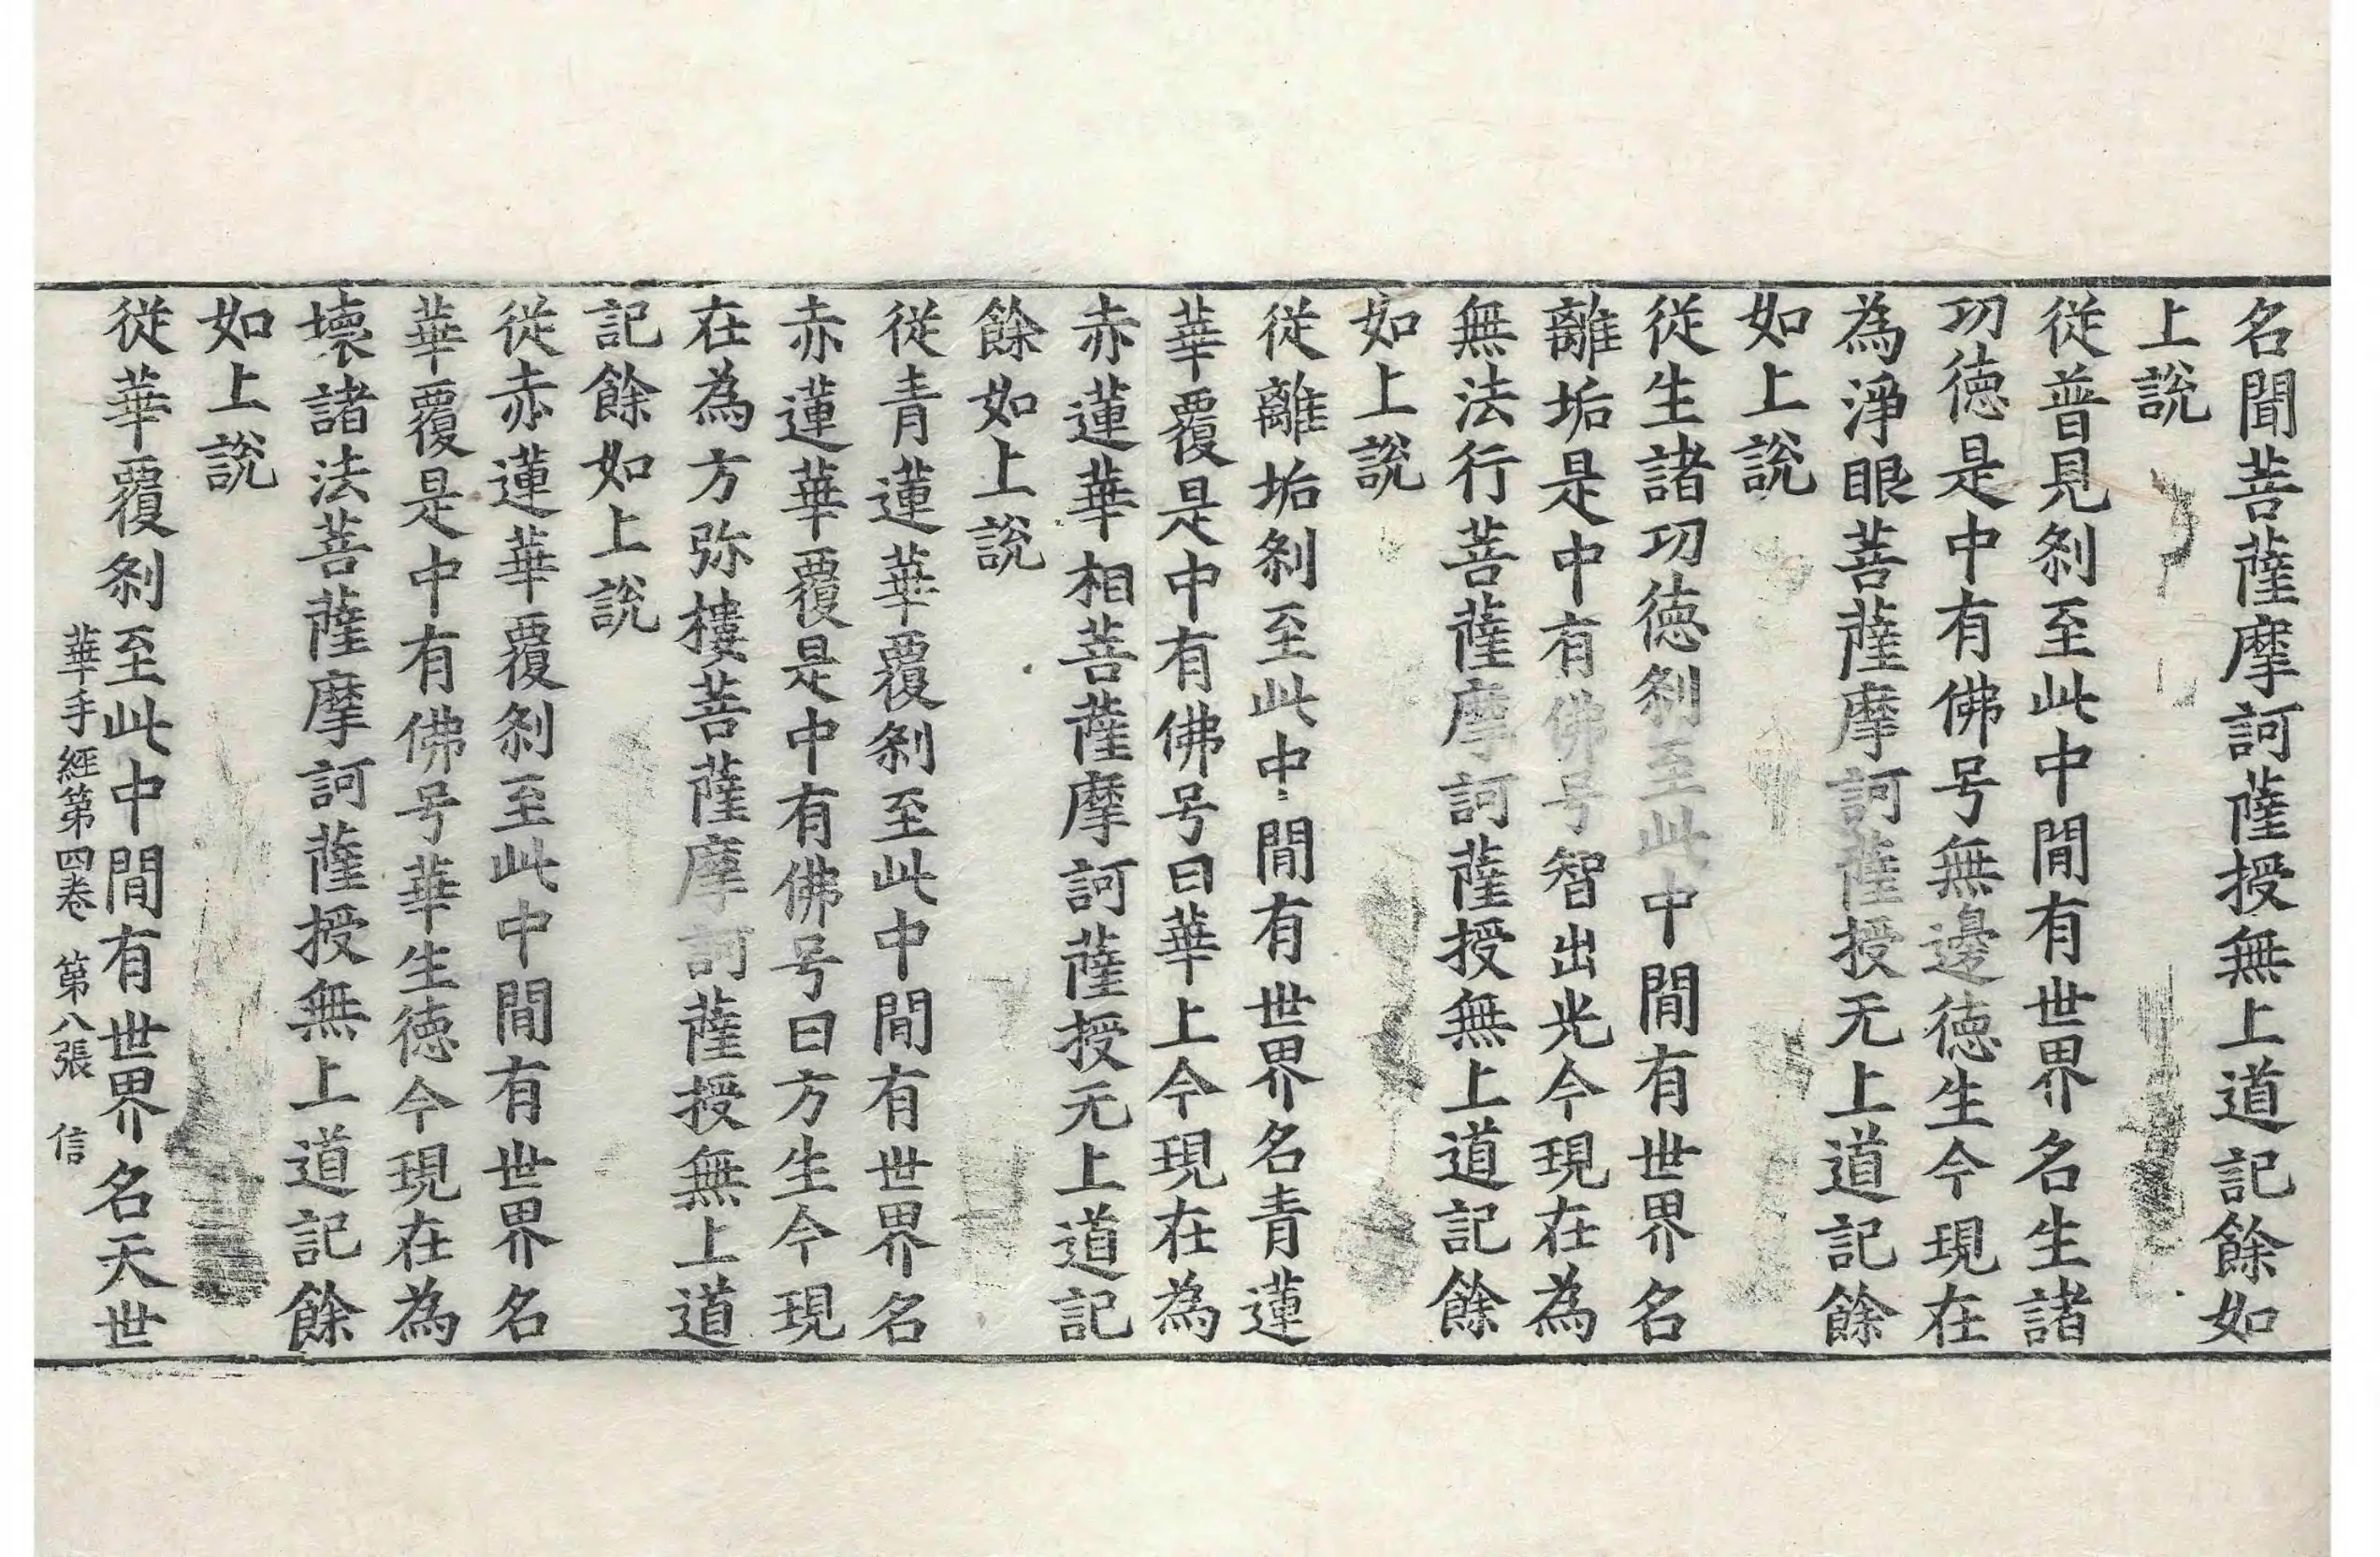 名聞菩薩摩訶薩授無上道記餘如
上說
從普見刹至此中間有世界名生諸
功德是中有佛号無邊德生今現在
為淨眼菩薩摩訶薩授无上道記餘
如上說
從生諸功德刹至此中間有世界名
離垢是中有佛号智出光今現在為
無法行菩薩摩訶薩授無上道記餘
如上說
從離垢刹至此中間有世界名青蓮
華覆是中有佛号曰華上今現在為
赤蓮華相菩薩摩訶薩授无上道記
餘如上說
從青蓮華覆刹至此中間有世界名
赤蓮華覆是中有佛号曰方生今現
在為方弥樓菩薩摩訶薩授無上道
記餘如上說
從赤蓮華覆刹至此中間有世界名
華覆是中有佛号華生德今現在為
壞諸法菩薩摩訶薩授無上道記餘
如上說
從華覆刹至此中間有世界名天世
華手經第四卷 第八張 信